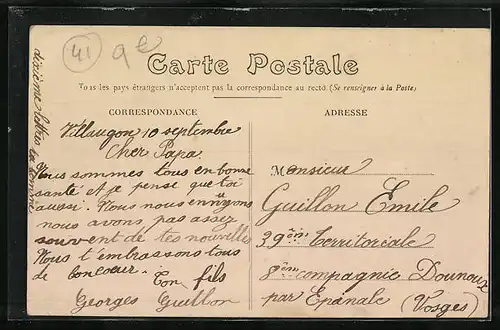 41
9€
Carte Postale
Tous les pays étrangers n'acceptent pas la correspondance au recto. (Se renseigner à la Poste)
CORRESPONDANCE
ADRESSE
Villaugon 10 septembre
Cher Papa
Nous sommes tous en bonne
santé et je pense que toi
aussi. Nous nous ennuyons
nous avons pas assez
souvent de tes nouvelles
Nous t'embrassons tous
de bon coeur. Ton fils
Georges Guillon
Monsieur
Guillon Emile
39ème territoriale
8ème compagnie Dounoux
par Epinale (Vosges)
dixième lettre